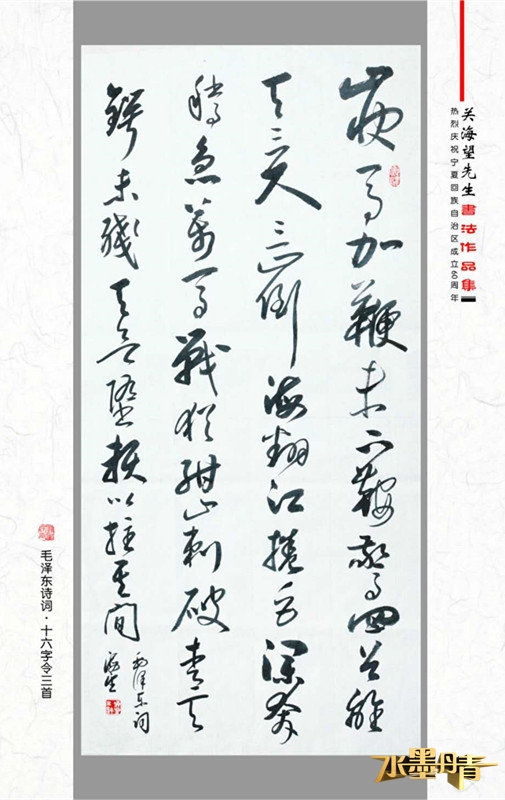 关海望先生書法作品集
热烈庆祝宁夏回族自治区成立60周年
山快马加鞭未下鞍驚回首離
天三尺三山倒海翻江捲巨澜奔
腾急萬马戰犹酣山刺破青天
锷未残天欲堕赖以拄其间
毛泽东词
海望
毛泽东诗词·十六字令三首
水墨丹青